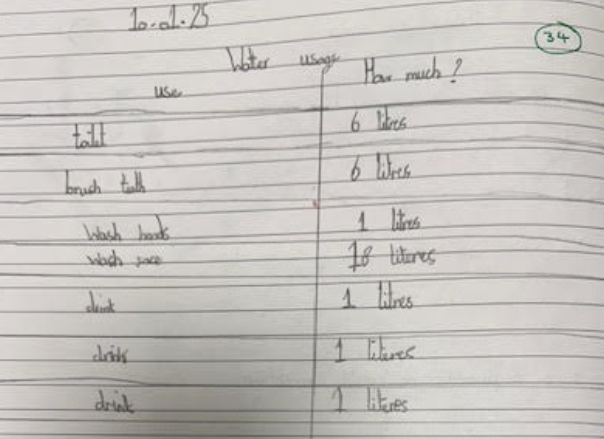 10.01.25
34
Water usage
use How much?
toilet 6 litres
brush teeth 6 litres
Wash hands 1 litres
Wash face 18 literes
drink 1 litres
drinks 1 literes
drink 1 literes